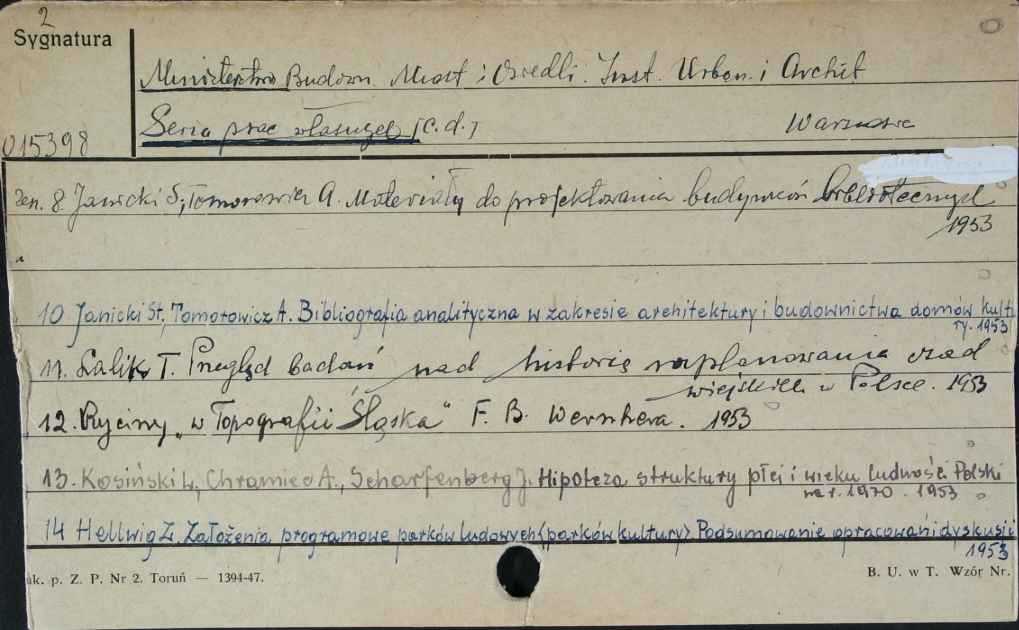 2
Sygnatura
Ministerstwo Budown. Miast i Osiedli. Inst. Urban. i Archit
Seria prac własnych [c.d.] Warszawa
015398
zen. 8. Janicki S, Tomorowicz A. Materiały do projektowania budynków bibliotecznych
1953
10 Janicki St., Tomorowicz A. Bibliografia analityczna w zakresie architektury i budownictwa domów kultu
ry. 1953
11. Lalik T. Przegląd badań nad historią zaplanowania osad
wiejskich w Polsce. 1953
12. Ryciny „w Topografii Śląska" F. B. Wernhera. 1953
13. Kosiński L, Chramiec A., Scharfenberg J. Hipoteza struktury płci i wieku ludności Polski
na r. 1970. 1953
14 Hellwig Z. Założenia programowe parków ludowych (parków kultury) Podsumowanie opracowań i dyskusji
1953
uk. p. Z. P. Nr 2. Toruń — 1394-47.
B. U. w T. Wzór Nr.